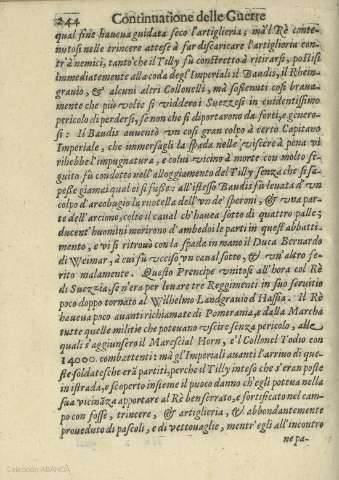 244 Continuatione delle Guerre
qual fine haueua guidata seco l'artiglieria; mà l Rè conte-
nutosi nelle trincere attese à far discaricare l'artiglieria con-
tr'à nemici, tanto che il Tilly fù constretto à ritirarsi, postisi
immediatamente alla coda degl'Imperiali il Baudis, il Rhein-
grauio, & alcuni altri Collonelli, mà sostenuti cosi braua-
mente che più volte si vidderoi Suezzesi in euidentissimo
pericolo di perdersi, se non che si diportarono da forti, e genero-
si: Il Baudis auuentò vn cosi gran colpo à certo Capitano
Imperiale, che immersagli la spada nelle viscere à pena vi
rihebbe l'impugnatura, e colui vicino à morte con molto se-
guito fù condotto nell'alloggiamento del Tilly senza che si sa-
pesse giamai qual ei si fusse: all'istesso Baudis fù leuata d'vn
colpo d'arcobugio la rotella dell'vn de' speroni, & vna par-
te dell'arcione, colto il caual ch'hauea sotto di quattro palle;
ducent'huomini morirono d'ambedoi le parti in quest'abbatti-
mento, e vi si ritrouò con la spada in mano il Duca Bernardo
di Weimar, à cui fù vcciso vn caual sotto, & vn'altro fe-
rito malamente. Questo Prencipe vnitosi all'hora col Rè
di Suezzia, se n'era per leuare tre Reggimenti in suo seruitio
poco doppo tornato al Wilhelmo Landgrauio d'Hassia. Il Rè
haueua poco auanti richiamate di Pomerania, e dalla Marcha
tutte quelle militie che poteuano vscire senza pericolo, alle
quali s'aggiunsero il Marescial Horn, e'l Collonel Todio con
14000. combattenti: mà gl'Imperiali auanti l'arriuo di que-
ste soldatesche erà partiti, perche il Tilly inteso che s'eran poste
in istrada, e scoperto insieme il poco danno ch'egli pottua nella
sua vicinăza apportare al Rè ben serrato, e fortificato nel cam-
po con fosse, trincere, & artiglieria, & abbondantemente
proueduto di pascoli, e di vettouaglie, mentr'egli all'incontro
ne pa-
Colección ABANCA